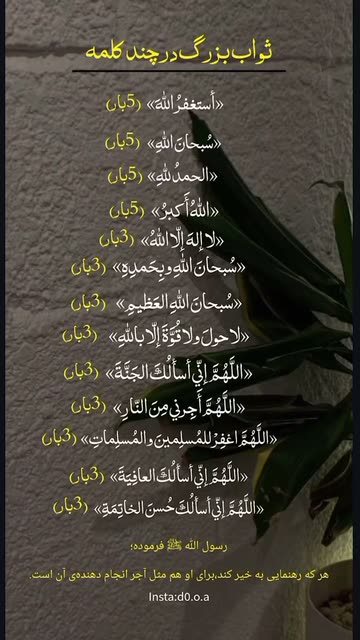 ثواب بزرگ در چند کلمه
«أستغفرُ اللهَ» (5بار)
«سُبحانَ اللهِ» (5بار)
«الحمدُ للهِ» (5بار)
«اللهُ أَكبرُ» (5بار)
«لا إلهَ إلّا اللهُ» (3بار)
«سُبحانَ اللهِ وبِحَمدِهِ» (3بار)
«سُبحانَ اللهِ العَظيمِ» (3بار)
«لا حولَ ولا قُوَّةَ إلّا باللهِ» (3بار)
«اللَّهُمَّ إنّي أسألُكَ الجَنَّةَ» (3بار)
«اللَّهُمَّ أَجِرني مِنَ النّارِ» (3بار)
«اللَّهُمَّ اغفِرْ للمُسلِمينَ والمُسلِماتِ» (3بار)
«اللَّهُمَّ إنّي أسألُكَ العافِيَةَ» (3بار)
«اللَّهُمَّ إنّي أسألُكَ حُسنَ الخاتِمَةِ» (3بار)
رسول الله ﷺ فرموده؛
هر که رهنمایی به خیر کند،برای او هم مثل آجر انجام دهنده‌ی آن است.
Insta:d0.o.a